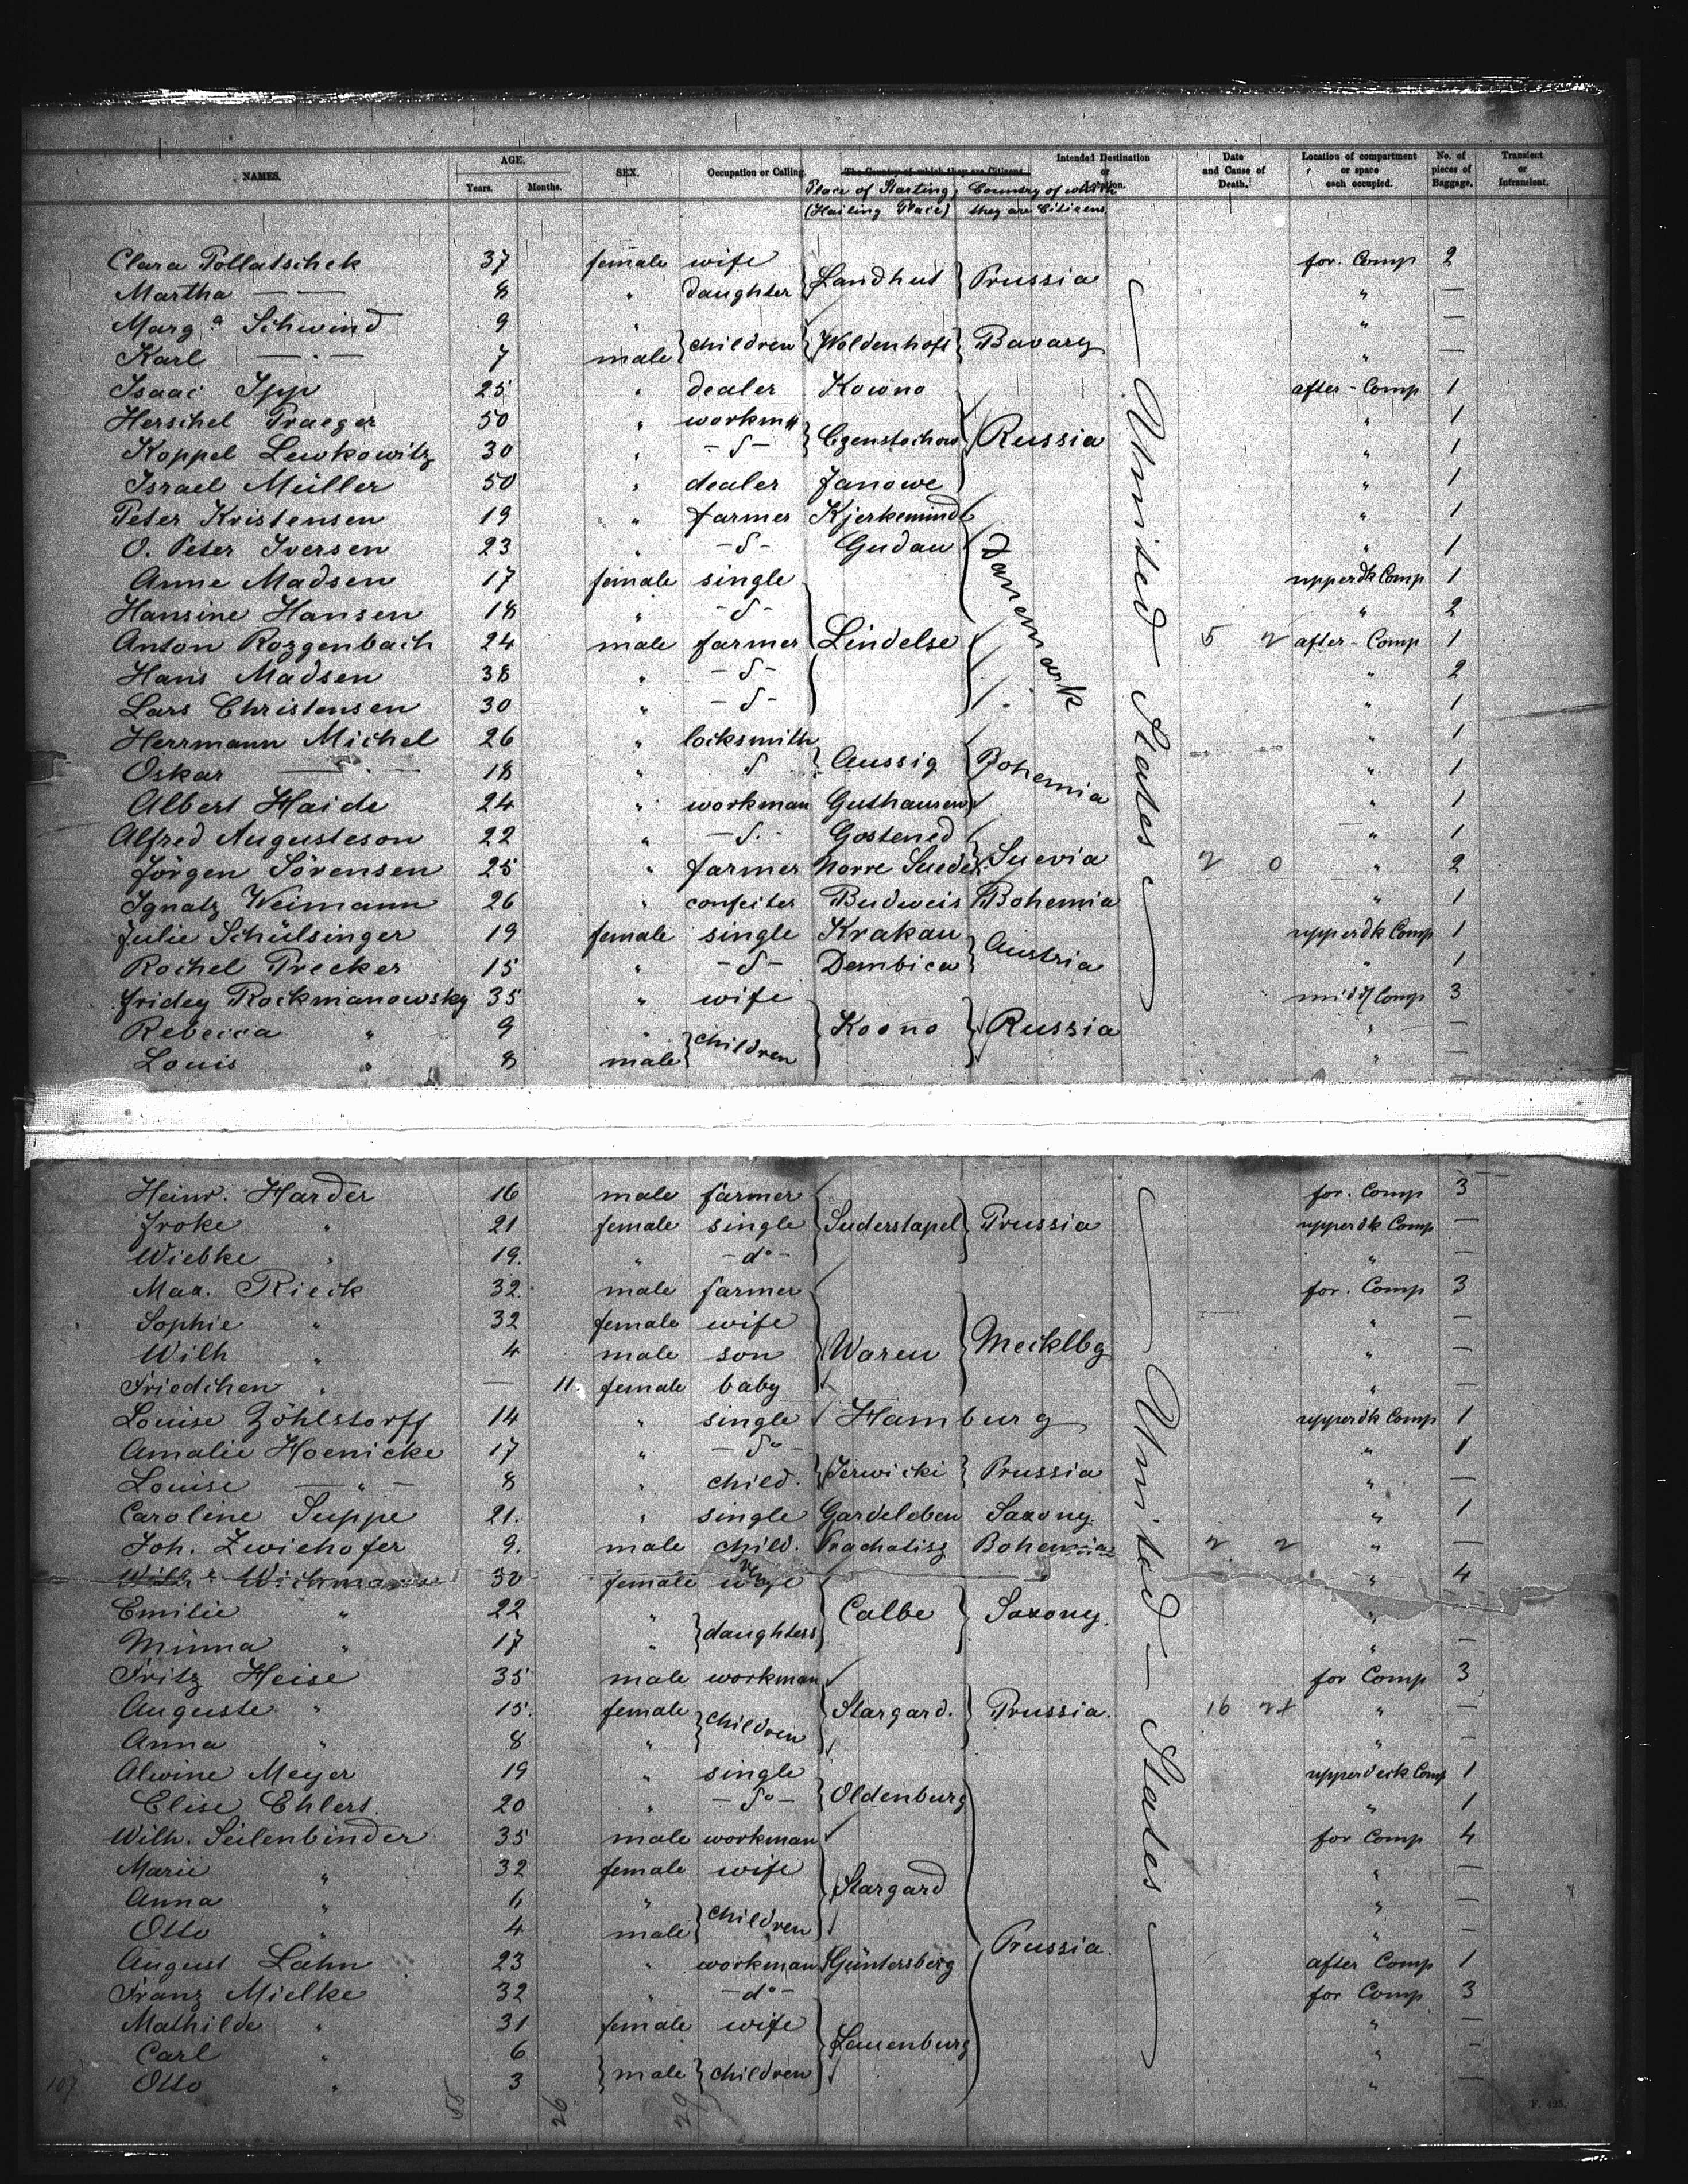 NAMES. AGE. Years. Months. SEX. Occupation or Calling. The Country of which they are Citizens. Intended Destination or Location. Date and Cause of Death. Location of compartment or space each occupied. No. of pieces of Baggage. Transient or Intransient.
Place of Starting, Country of which
(Hailing Place) they are Citizens.
Clara Pollatschek 37 female wife Landhut Prussia for. Comp 2
Martha — — 8 " daughter " —
Marg a Schwind 9 " children Woldenhoft Bavary " —
Karl — . — 7 male " —
Isaac Ipp 25 " dealer Kowno Russia after-Comp 1
Herschel Praeger 50 " workm Czenstochow " 1
Koppel Lewkowitz 30 " - d - " 1
Israel Müller 50 " dealer Janowe " 1
Peter Kristensen 19 " farmer Kjerkeminde Danemark " 1
O. Peter Iversen 23 " - d - Gudau " 1
Anne Madsen 17 female single Lindelse upperdk Comp 1
Hansine Hansen 18 " - d - " 2
Anton Rozgenbach 24 male farmer 5 2 after-Comp 1
Hans Madsen 38 " - d - " 2
Lars Christensen 30 " - d - " 1
Herrmann Michel 26 " locksmith Aussig Bohemia " 1
Oskar — . — 18 " d " 1
Albert Haide 24 " workman Guthausen " 1
Alfred Augusteson 22 " - d. - Gostened Suevia " 1
Jörgen Sörensen 25 " farmer Norre Suede 2 0 " 2
Ignatz Weimann 26 " confeiter Budweis Bohemia " 1
Julie Schülsinger 19 female single Krakau Austria upperdk Comp 1
Rochel Trecker 15 " - d - Dembica " 1
Fridey Rockmanowsky 35 " wife Kowno Russia midd Comp 3
Rebecca " 9 " children " —
Louis " 8 male " —
United States
Heinr. Harder 16 male farmer Suderstapel Prussia for. Comp 3
Froke " 21 female single upperdk Comp —
Wiebke " 19. " - do - " —
Max. Rieck 32. male farmer Waren Mecklbg for. Comp 3
Sophie " 32 female wife " —
Wilh " 4 male son " —
Friedchen " — 11. female baby " —
Louise Zöhlstorff 14 " single Hamburg upperdk Comp 1
Amalie Hoenicke 17 " - do - Jerwicki Prussia " 1
Louise — " — 8 " child. " —
Caroline Suppe 21. " single Gardeleben Saxony. " 1
Joh. Zwiehofer 9. male child. Prachatisz Bohemia 2 2 " —
Wichmann 50 female Calbe Saxony. " 4
Emilie " 22 " daughters "
Minna " 17 " " —
Fritz Heise 35 male workman Stargard. Prussia. for Comp 3
Auguste " 15. female children 16 " —
Anna " 8 " " —
Alwine Meyer 19 " single Oldenburg upperdeck Comp 1
Elise Ehlers. 20 " - do - " 1
Wilh. Seilenbinder 35 male workman Stargard Prussia. for Comp 4
Marie " 32 female wife " —
Anna " 6 " children " —
Otto " 4 male " —
August Lahn 23 " workman Güntersberg after Comp 1
Franz Mielke 32 " - do - Lauenburg for Comp 3
Mathilde " 31 female wife " —
Carl " 6 male children " —
Otto " 3 " —
United States
107 26 29